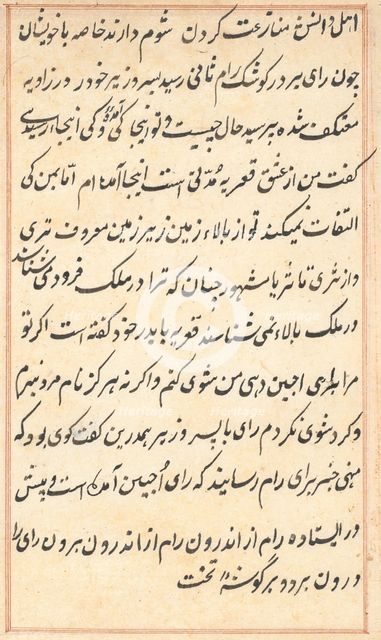 اهل دانش منازعت کردن شوم دارند خاصه با خویشان
چون رای ببر در کوشک رام ثانی رسید پسر وزیر خود در زاویه
معتکف شده پرسید حال چیست و تو اینجا کی آمدۀ و کی اینجا رسیدی
گفت من از عشق قعریه مدتی است اینجا آمده ام اما بمن کی
التفات نمیکند تو از بالاء زمین زیر زمین معروف تری
و از ثری تا ثریا مشهور چنان که ترا در ملک فرود می شناسند
در ملک بالاء نمی شناسند قعریه با پدر خود گفته است اگر تو
مرا برای اجین دهی من شوی کنم و اگر نه هرگز نام مرد نبرم
و گرد شوی نگردم رای با پسر وزیر همدرین گفت گوی بود که
منهی خبر برای رام رسانیند که رای اجین آمده است و پیش
در ایستاده رام از اندرون رام از اندرون برون رای را
درون برد و بر گوشۀ تخت
heritage
Heritage
Heritage